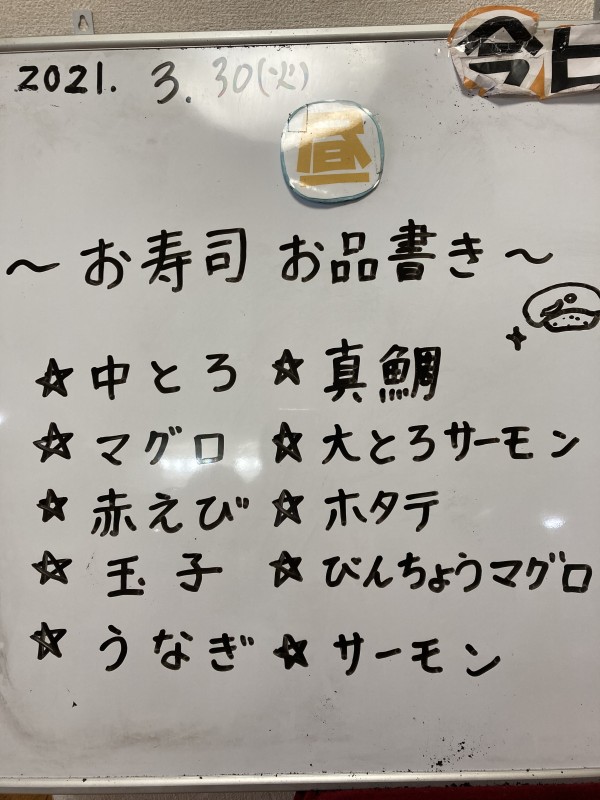 2021. 3. 30(火)
今日
昼
～お寿司 お品書き～
☆中とろ ☆真鯛
☆マグロ ☆大とろサーモン
☆赤えび ☆ホタテ
☆玉子 ☆びんちょうマグロ
☆うなぎ ☆サーモン